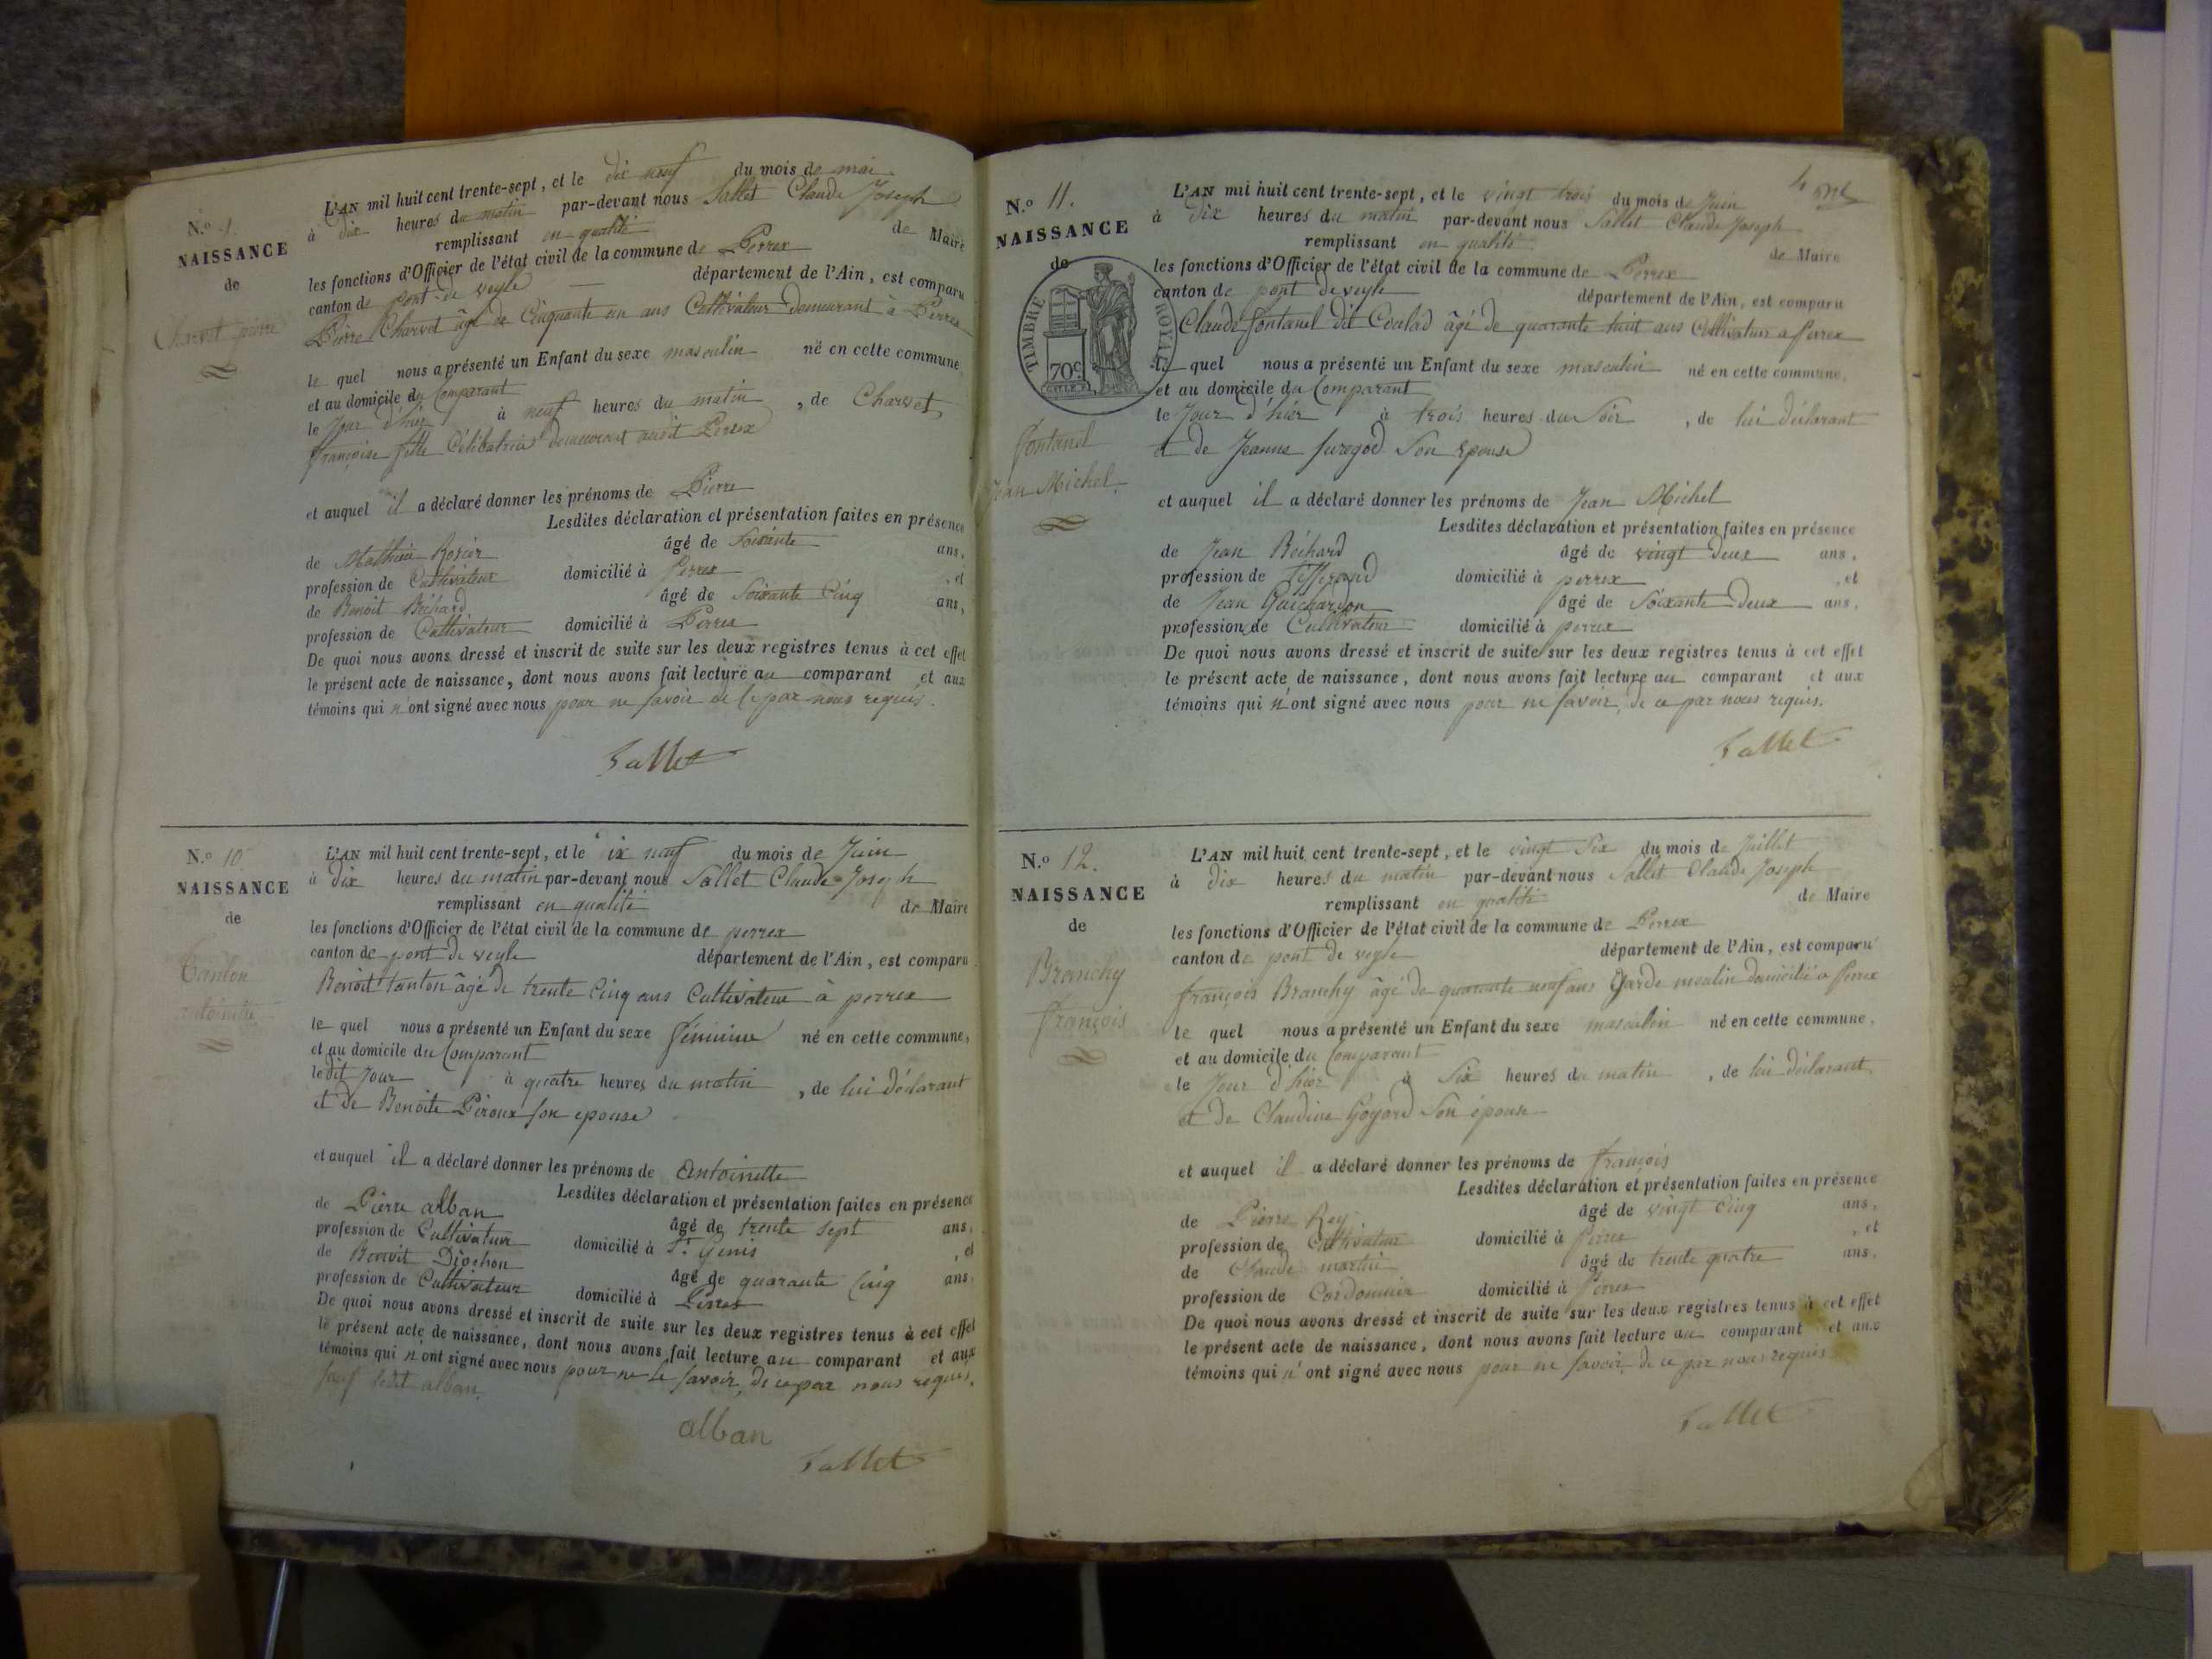 N.º 9.
NAISSANCE
de
Charvet pierre
L'AN mil huit cent trente-sept, et le dix neuf du mois de mai
à dix heures du matin par-devant nous Sallet Claude Joseph
remplissant en qualité de Maire
les fonctions d'Officier de l'état civil de la commune de Perrex
canton de pont de veyle département de l'Ain, est comparu
Pierre Charvet âgé de Cinquante un ans Cultivateur demeurant à Perrex
le quel nous a présenté un Enfant du sexe masculin né en cette commune
et au domicile du Comparant
le Jour d'hier à neuf heures du matin, de Charvet
françoise fille Célibatrice demeurant audit Perrex
et auquel il a déclaré donner les prénoms de Pierre
Lesdites déclaration et présentation faites en présence
de Mathieu Rozier âgé de Soixante ans,
profession de Cultivateur domicilié à Perrex, et
de Benoit Béchard âgé de Soixante Cinq ans,
profession de Cultivateur domicilié à Perrex
De quoi nous avons dressé et inscrit de suite sur les deux registres tenus à cet effet
le présent acte de naissance, dont nous avons fait lecture au comparant et aux
témoins qui n'ont signé avec nous pour ne savoir de ce par nous requis.
Sallet
N.º 10
NAISSANCE
de
Tanton
antoinette
L'AN mil huit cent trente-sept, et le dix neuf du mois de Juin
à dix heures du matin par-devant nous Sallet Claude Joseph
remplissant en qualité de Maire
les fonctions d'Officier de l'état civil de la commune de perrex
canton de pont de veyle département de l'Ain, est comparu
Benoit tanton âgé de trente Cinq ans Cultivateur à perrex
le quel nous a présenté un Enfant du sexe féminin né en cette commune,
et au domicile du Comparant
le dit Jour à quatre heures du matin, de lui déclarant
et de Benoite Péroux son épouse
et auquel il a déclaré donner les prénoms de Antoinette
Lesdites déclaration et présentation faites en présence
de Pierre alban âgé de trente sept ans,
profession de Cultivateur domicilié à St Genis, et
de Benoit Diochon âgé de quarante Cinq ans
profession de Cultivateur domicilié à Perrex
De quoi nous avons dressé et inscrit de suite sur les deux registres tenus à cet effet
le présent acte de naissance, dont nous avons fait lecture au comparant et aux
témoins qui n'ont signé avec nous pour ne le savoir, de ce par nous requis,
sauf ledit alban.
alban
Sallet
N.º 11.
NAISSANCE
de
TIMBRE ROYAL
70c
fontanel
Jean Michel
L'AN mil huit cent trente-sept, et le vingt trois du mois de Juin
à dix heures du matin par-devant nous Sallet Claude Joseph
remplissant en qualité de Maire
les fonctions d'Officier de l'état civil de la commune de Perrex
canton de pont de veyle département de l'Ain, est comparu
Claude fontanel dit Coulad âgé de quarante huit ans Cultivateur a perrex
le quel nous a présenté un Enfant du sexe masculin né en cette commune,
et au domicile du Comparant
le Jour d'hier à trois heures du Soir, de lui déclarant
et de Jeanne furegod Son Epouse
et auquel il a déclaré donner les prénoms de Jean Michel
Lesdites déclaration et présentation faites en présence
de Jean Béchard âgé de vingt deux ans,
profession de Tisserand domicilié à perrex, et
de Jean Guichardon âgé de Soixante deux ans,
profession de Cultivateur domicilié à perrex
De quoi nous avons dressé et inscrit de suite sur les deux registres tenus à cet effet
le présent acte de naissance, dont nous avons fait lecture au comparant et aux
témoins qui n'ont signé avec nous pour ne savoir, de ce par nous requis.
Sallet
N.º 12.
NAISSANCE
de
Branchy
françois
L'AN mil huit cent trente-sept, et le vingt Six du mois de Juillet
à dix heures du matin par-devant nous Sallet Claude Joseph
remplissant en qualité de Maire
les fonctions d'Officier de l'état civil de la commune de Perrex
canton de pont de veyle département de l'Ain, est comparu
françois Branchy âgé de quarante neuf ans Garde moulin domicilié a Perrex
le quel nous a présenté un Enfant du sexe masculin né en cette commune,
et au domicile du Comparant
le Jour d'hier à Six heures du matin, de lui déclarant
et de Claudine Goyard Son épouse
et auquel il a déclaré donner les prénoms de françois
Lesdites déclaration et présentation faites en présence
de Pierre Rey âgé de vingt Cinq ans,
profession de Cultivateur domicilié à Perrex, et
de Claude martin âgé de trente quatre ans,
profession de Cordonnier domicilié à Perrex
De quoi nous avons dressé et inscrit de suite sur les deux registres tenus à cet effet
le présent acte de naissance, dont nous avons fait lecture au comparant et aux
témoins qui n'ont signé avec nous pour ne savoir, de ce par nous requis
Sallet